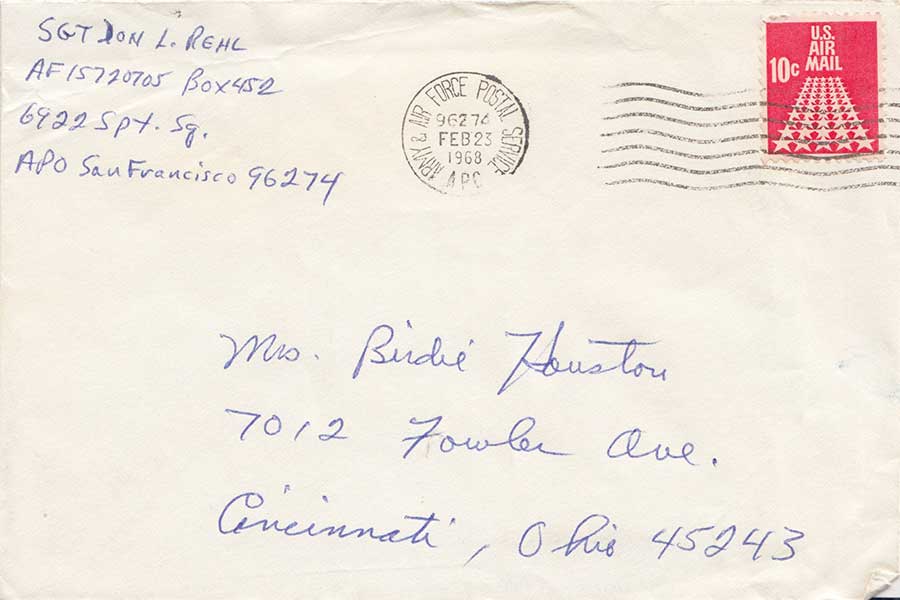 SGT DON L. REHL
AF15720705 Box 452
6922 Spt. Sq.
APO San Francisco 96274
ARMY & AIR FORCE POSTAL SERVICE
96274
FEB 23
1968
APO
U.S.
AIR
MAIL
10c
Mrs. Birdie Houston
7012 Fowler Ave.
Cincinnati, Ohio 45243